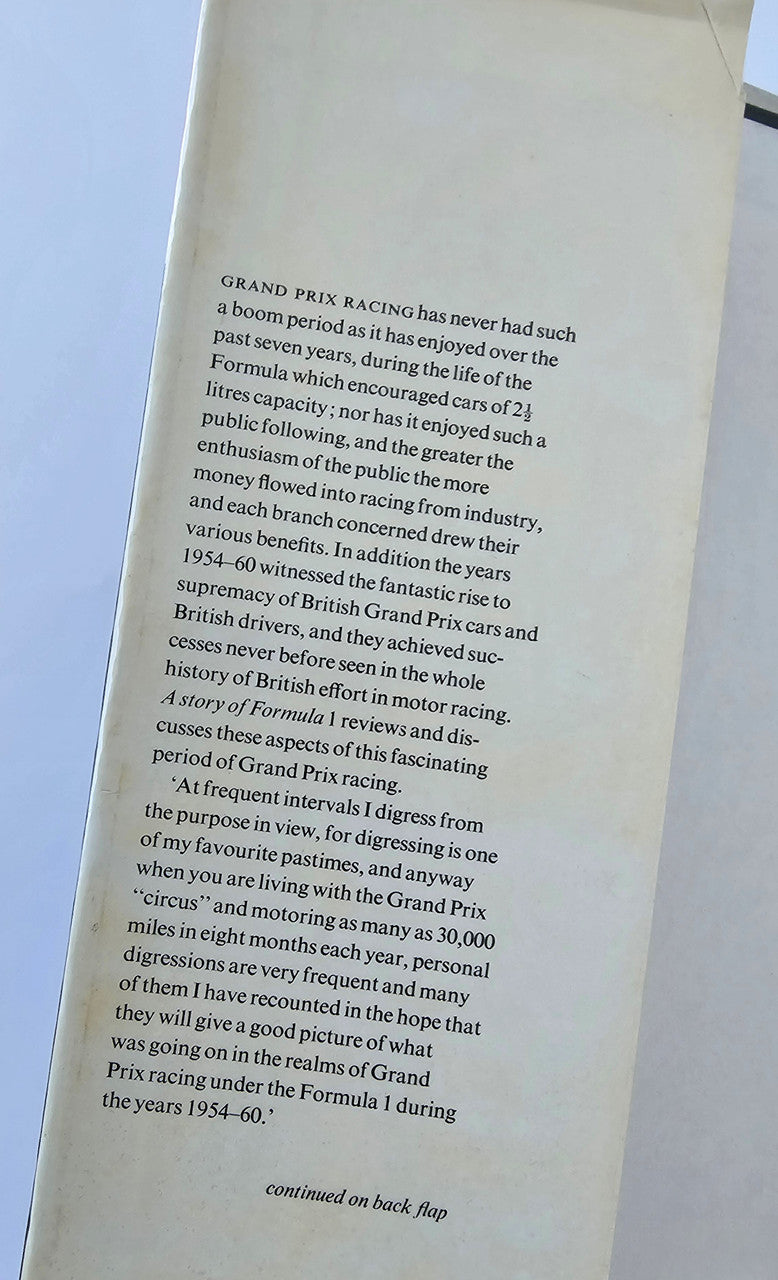 GRAND PRIX RACING has never had such
a boom period as it has enjoyed over the
past seven years, during the life of the
Formula which encouraged cars of 2½
litres capacity; nor has it enjoyed such a
public following, and the greater the
enthusiasm of the public the more
money flowed into racing from industry,
and each branch concerned drew their
various benefits. In addition the years
1954–60 witnessed the fantastic rise to
supremacy of British Grand Prix cars and
British drivers, and they achieved suc-
cesses never before seen in the whole
history of British effort in motor racing.
A story of Formula 1 reviews and dis-
cusses these aspects of this fascinating
period of Grand Prix racing.
‘At frequent intervals I digress from
the purpose in view, for digressing is one
of my favourite pastimes, and anyway
when you are living with the Grand Prix
“circus” and motoring as many as 30,000
miles in eight months each year, personal
digressions are very frequent and many
of them I have recounted in the hope that
they will give a good picture of what
was going on in the realms of Grand
Prix racing under the Formula 1 during
the years 1954–60.’
continued on back flap